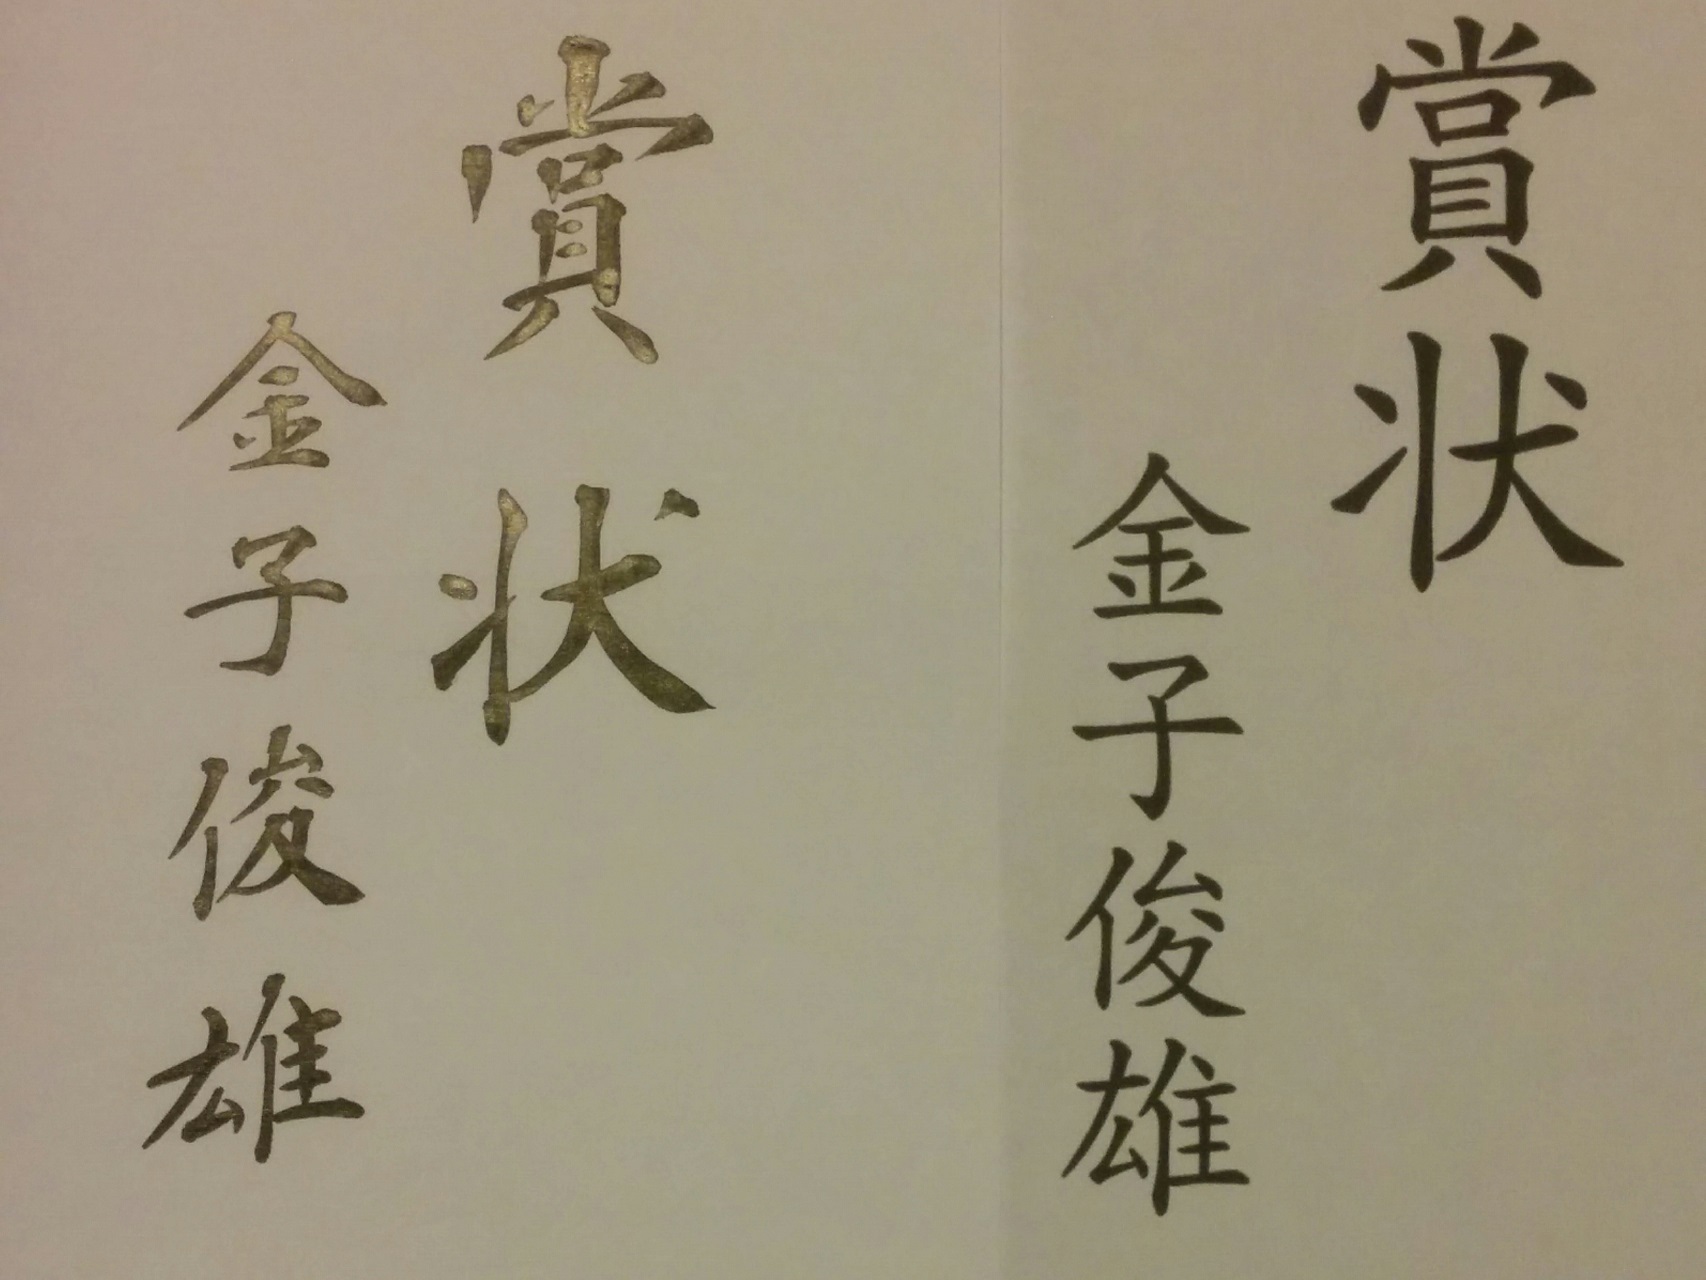 賞状
金子俊雄
賞状
金子俊雄